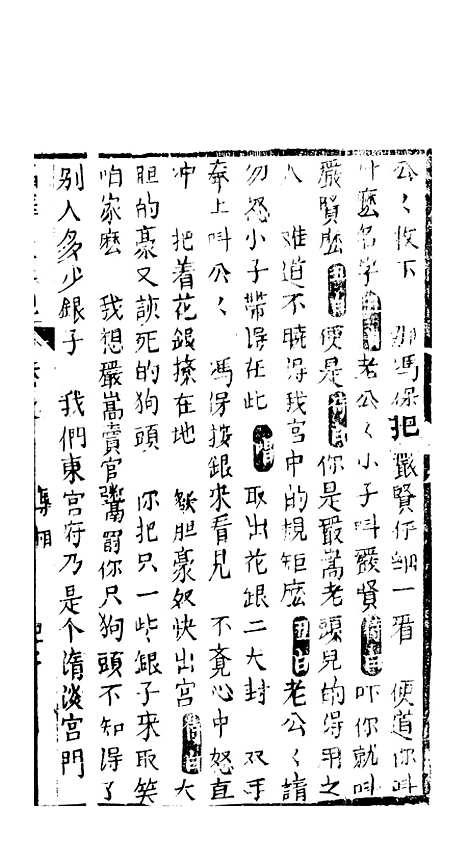 公〱收下　那馮保把嚴賢仔細一看　便道你叫
什麼名字丑白老公〱小子叫嚴賢符白吓你就叫
嚴賢麽丑白便是符白你是嚴嵩老頭兒的得用之
人　难道不曉得我宮中的規矩麽丑白老公〱請
勿怒小子带得在此唱取出花銀二大封　双手
奉上叫公〱　馮保接銀來看見　不覔心中怒直
冲　把着花銀撩在地　　胆豪奴快出宮符白大
胆的豪又該死的狗頭　你把只一些銀子來取笑
咱家麽　我想嚴嵩賣官鬻爵你只狗頭不知得了
别人多少銀子　我們東宮府乃是个清淡宮門